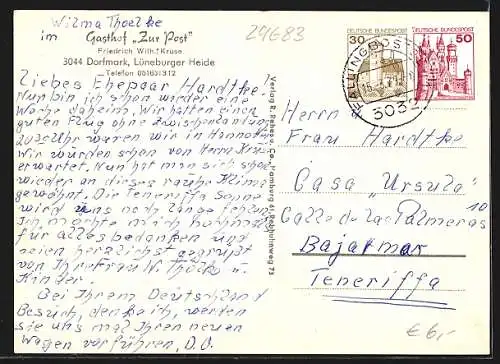 Wilma Thoelke
im Gasthof „Zur Post"
Friedrich Wilh. Kruse
3044 Dorfmark, Lüneburger Heide
Telefon 05163/312
29683
Liebes Ehepaar Hardtke.
Nun bin ich schon wieder eine
Woche daheim. Wir hatten einen
guten Flug ohne Zwischenlandung
Uhr waren wir in Hannover
Wir wurden schon von Herrn Kruse
erwartet. Nun hat man sich schon
wieder an dieses rauhe Klima
gewöhnt. Die Teneriffa Sonne
wird uns noch lange fehlen.
Ich möchte mich nochmals
für alles bedanken und
seien herzlichst gegrüßt
von Ihre Frau W. Thoelke u.
Kinder.
Bei Ihrem Deutschland
Besuch, den Sie ich, werden
sie uns mal Ihren neuen
Wagen vorführen. D.O.
Verlag R. Rehse u. Co., Hamburg 61, Rebhuhnweg 73
30 DEUTSCHE BUNDESPOST
DEUTSCHE BUNDESPOST 50
FALLINGBOSTEL
3032
Herrn
Frau Hardtke
Casa "Ursula"
Calle de las Palmeras 10
Bajamar
Teneriffa
€ 6,-